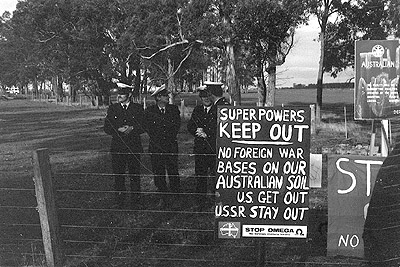 SUPER POWERS
KEEP OUT
NO FOREIGN WAR
BASES ON OUR
AUSTRALIAN SOIL
U.S. GET OUT
USSR STAY OUT
STOP OMEGA Ω
AUSTRALIAN
ST
NO